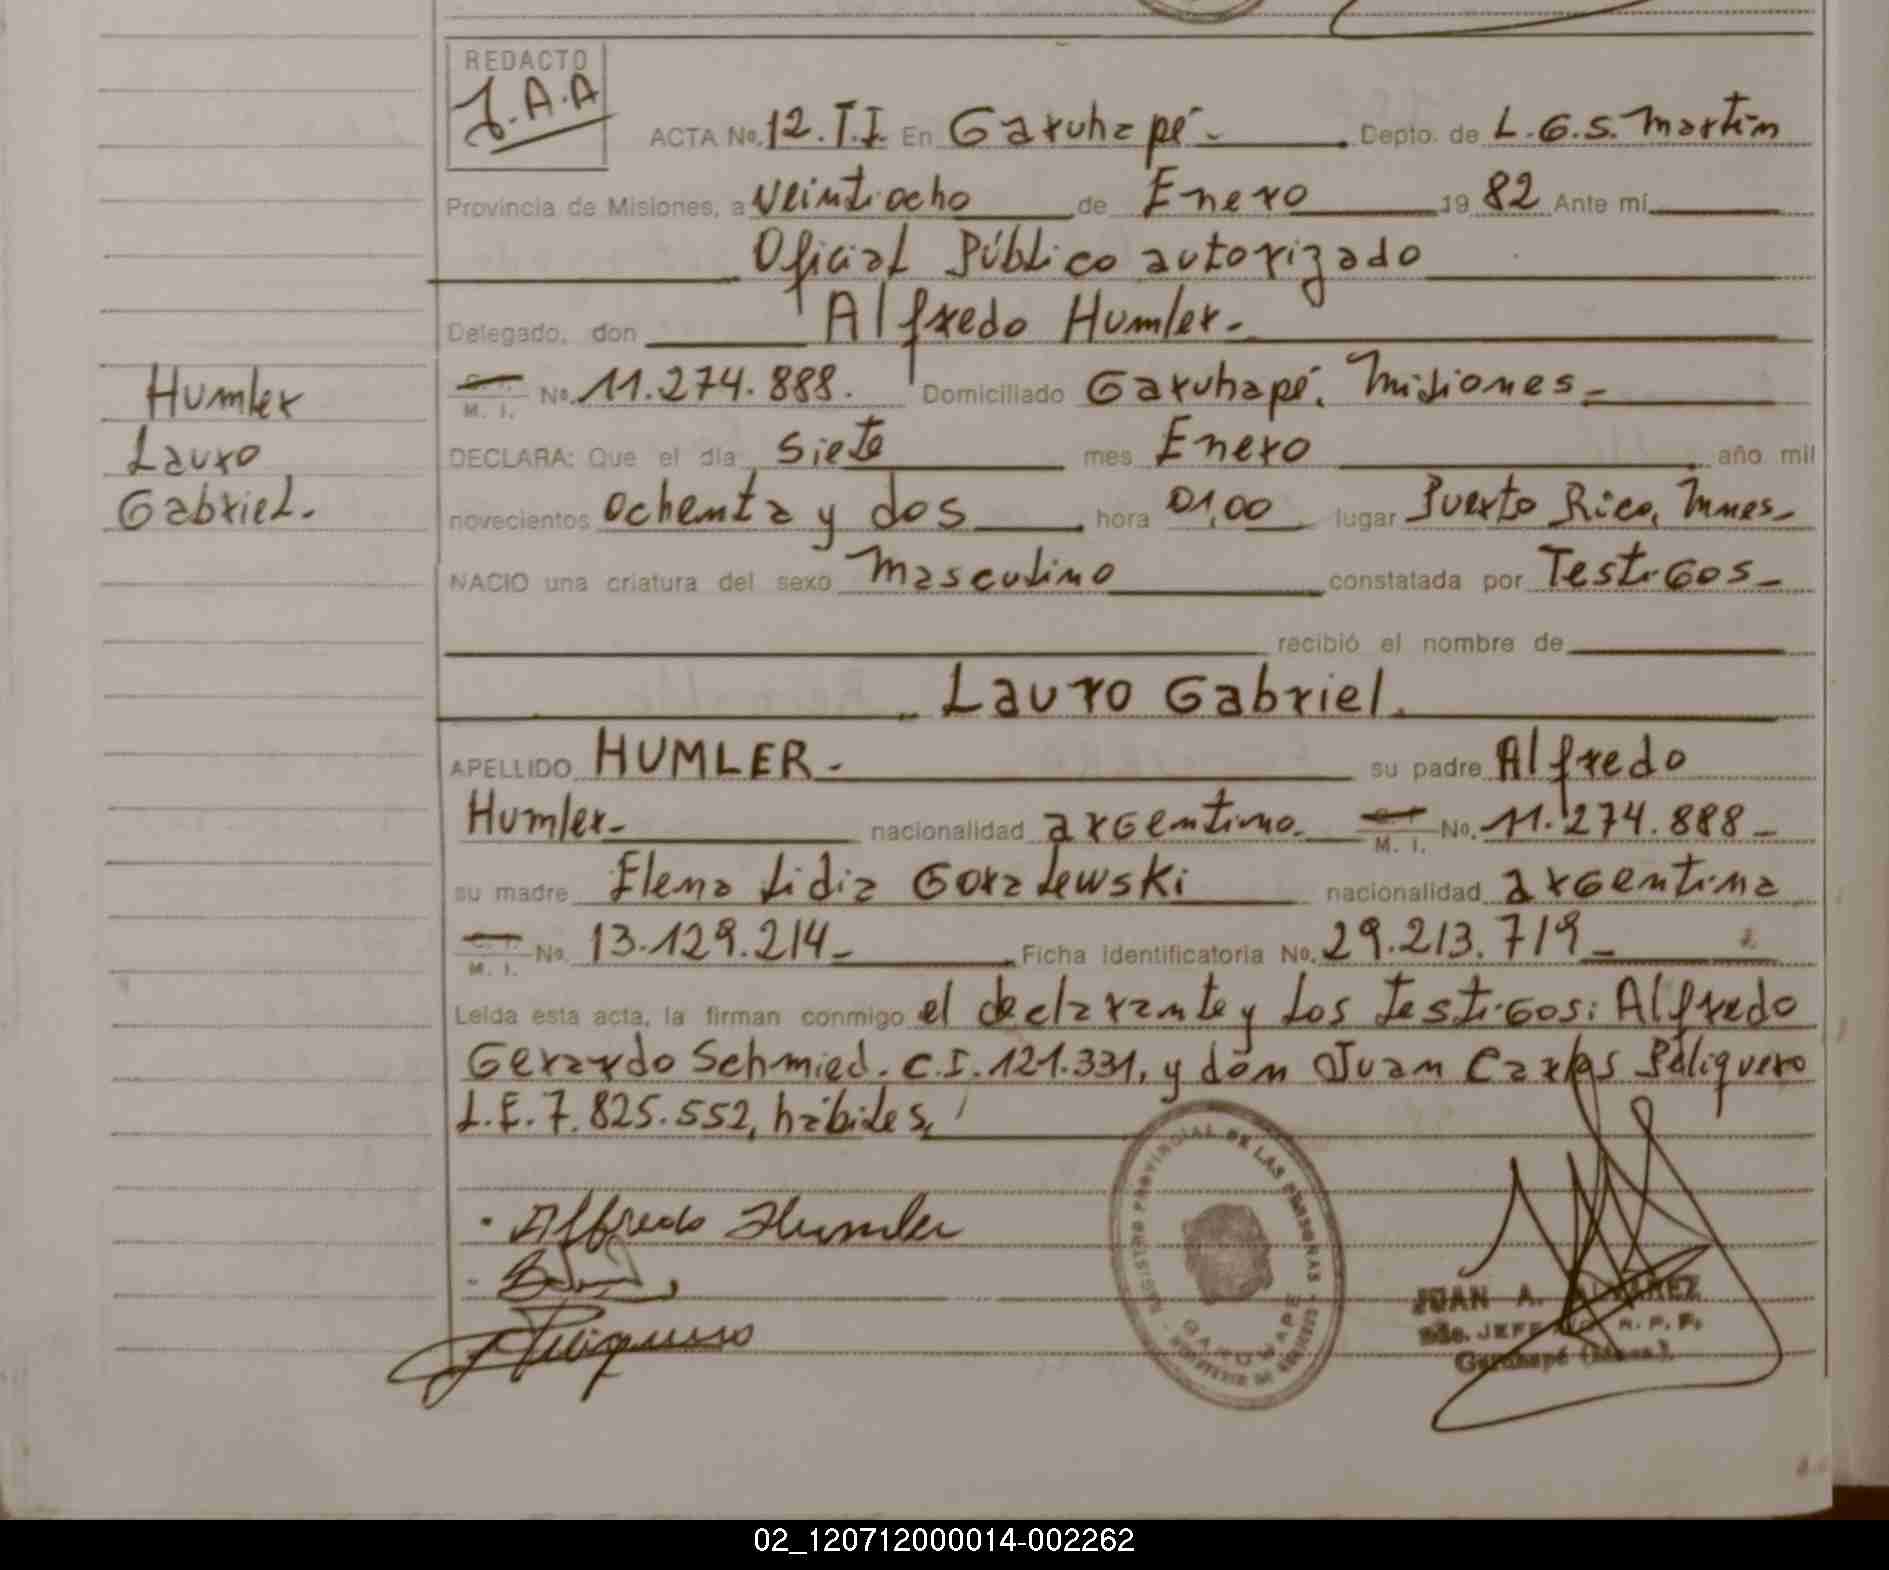 REDACTO
J.A.A
ACTA No. 12.T.I. En Garuhapé.- Depto. de L.G.S. Martín
Provincia de Misiones, a veintiocho de Enero 19 82 Ante mí
Oficial Público autorizado
Delegado, don Alfredo Humler.-
M. I. No. 11.274.888. Domiciliado Garuhapé, Misiones.-
DECLARA: Que el día siete mes Enero año mil
novecientos ochenta y dos hora 01,00 lugar Puerto Rico, Mnes.-
NACIO una criatura del sexo Masculino constatada por Testigos.-
recibió el nombre de
Lauro Gabriel.
APELLIDO HUMLER.- su padre Alfredo
Humler.- nacionalidad argentino. M. I. No. 11.274.888.-
su madre Elena Lidia Goralewski nacionalidad argentina
M. I. No. 13.129.214.- Ficha identificatoria No. 29.213.719.-
Leída esta acta, la firman conmigo el declarante y los testigos: Alfredo
Gerardo Schmied. C.I. 121.331, y don Juan Carlos Peliquero
L.E. 7.825.552, hábiles,
Humler
Lauro
Gabriel.-
Alfredo Humler
REGISTRO PROVINCIAL DE LAS PERSONAS
GARUHAPE
JUAN A. ALVAREZ
Garuhapé (Mnes.)
02_120712000014-002262